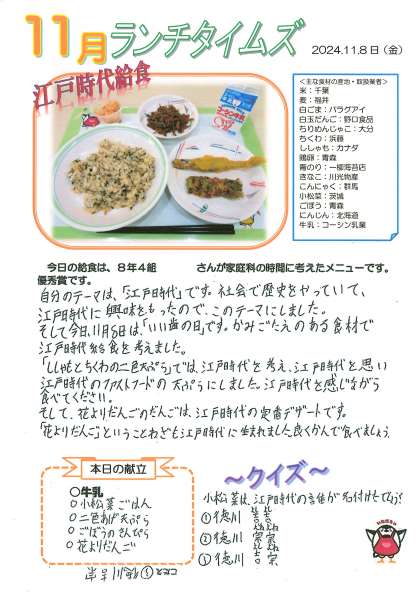 11月ランチタイムズ
2024.11.8日（金）
江戸時代給食
＜主な食材の産地・取扱業者＞
米：千葉
麦：福井
白ごま：パラグアイ
白玉だんご：野口食品
ちりめんじゃこ：大分
ちくわ：浜藤
ししゃも：カナダ
鶏卵：青森
青のり：一柳海苔店
きなこ：川光物産
こんにゃく：群馬
小松菜：茨城
ごぼう：青森
にんじん：北海道
牛乳：コーシン乳業
今日の給食は、８年４組 さんが家庭科の時間に考えたメニューです。
優秀賞です。
自分のテーマは、「江戸時代」です。社会で歴史をやっていて、
江戸時代に興味をもったので、このテーマにしました。
そして今日、11月8日は、「いい歯の日」です。かみごたえのある食材で
江戸時代給食を考えました。
「ししゃもとちくわの二色天ぷら」では、江戸時代を考え、江戸時代を思い
江戸時代のファストフードの天ぷらにしました。江戸時代を感じながら
食べてください。
そして、花よりだんごのだんごは、江戸時代の定番デザートです。
「花よりだんご」ということわざも江戸時代に生まれました。良くかんで食べましょう
本日の献立
○牛乳
○小松菜ごはん
○二色あげ天ぷら
○ごぼうのきんぴら
○花よりだんご
～クイズ～
小松菜は、江戸時代の誰が名付けたでしょう?
①徳川
②徳川 宗
③徳川 吉宗